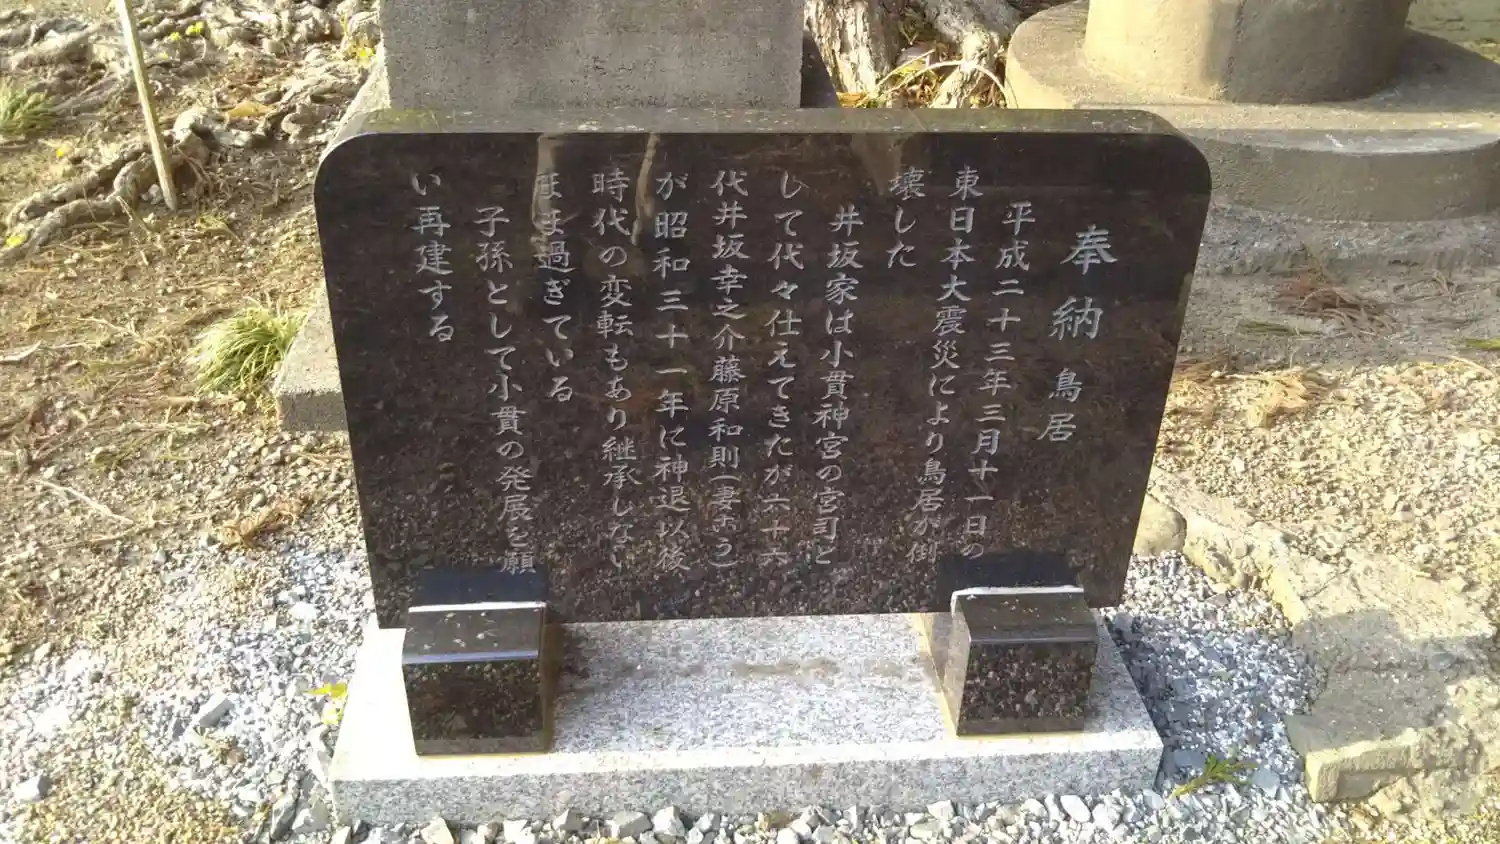 奉納 鳥居
平成二十三年三月十一日の
東日本大震災により鳥居が倒
壊した
井坂家は小貫神宮の宮司と
して代々仕えてきたが六十六
代井坂幸之介藤原和則(妻ホう)
が昭和三十一年に神退以後
時代の変転もあり継承しない
まま過ぎている
子孫として小貫の発展を願
い再建する